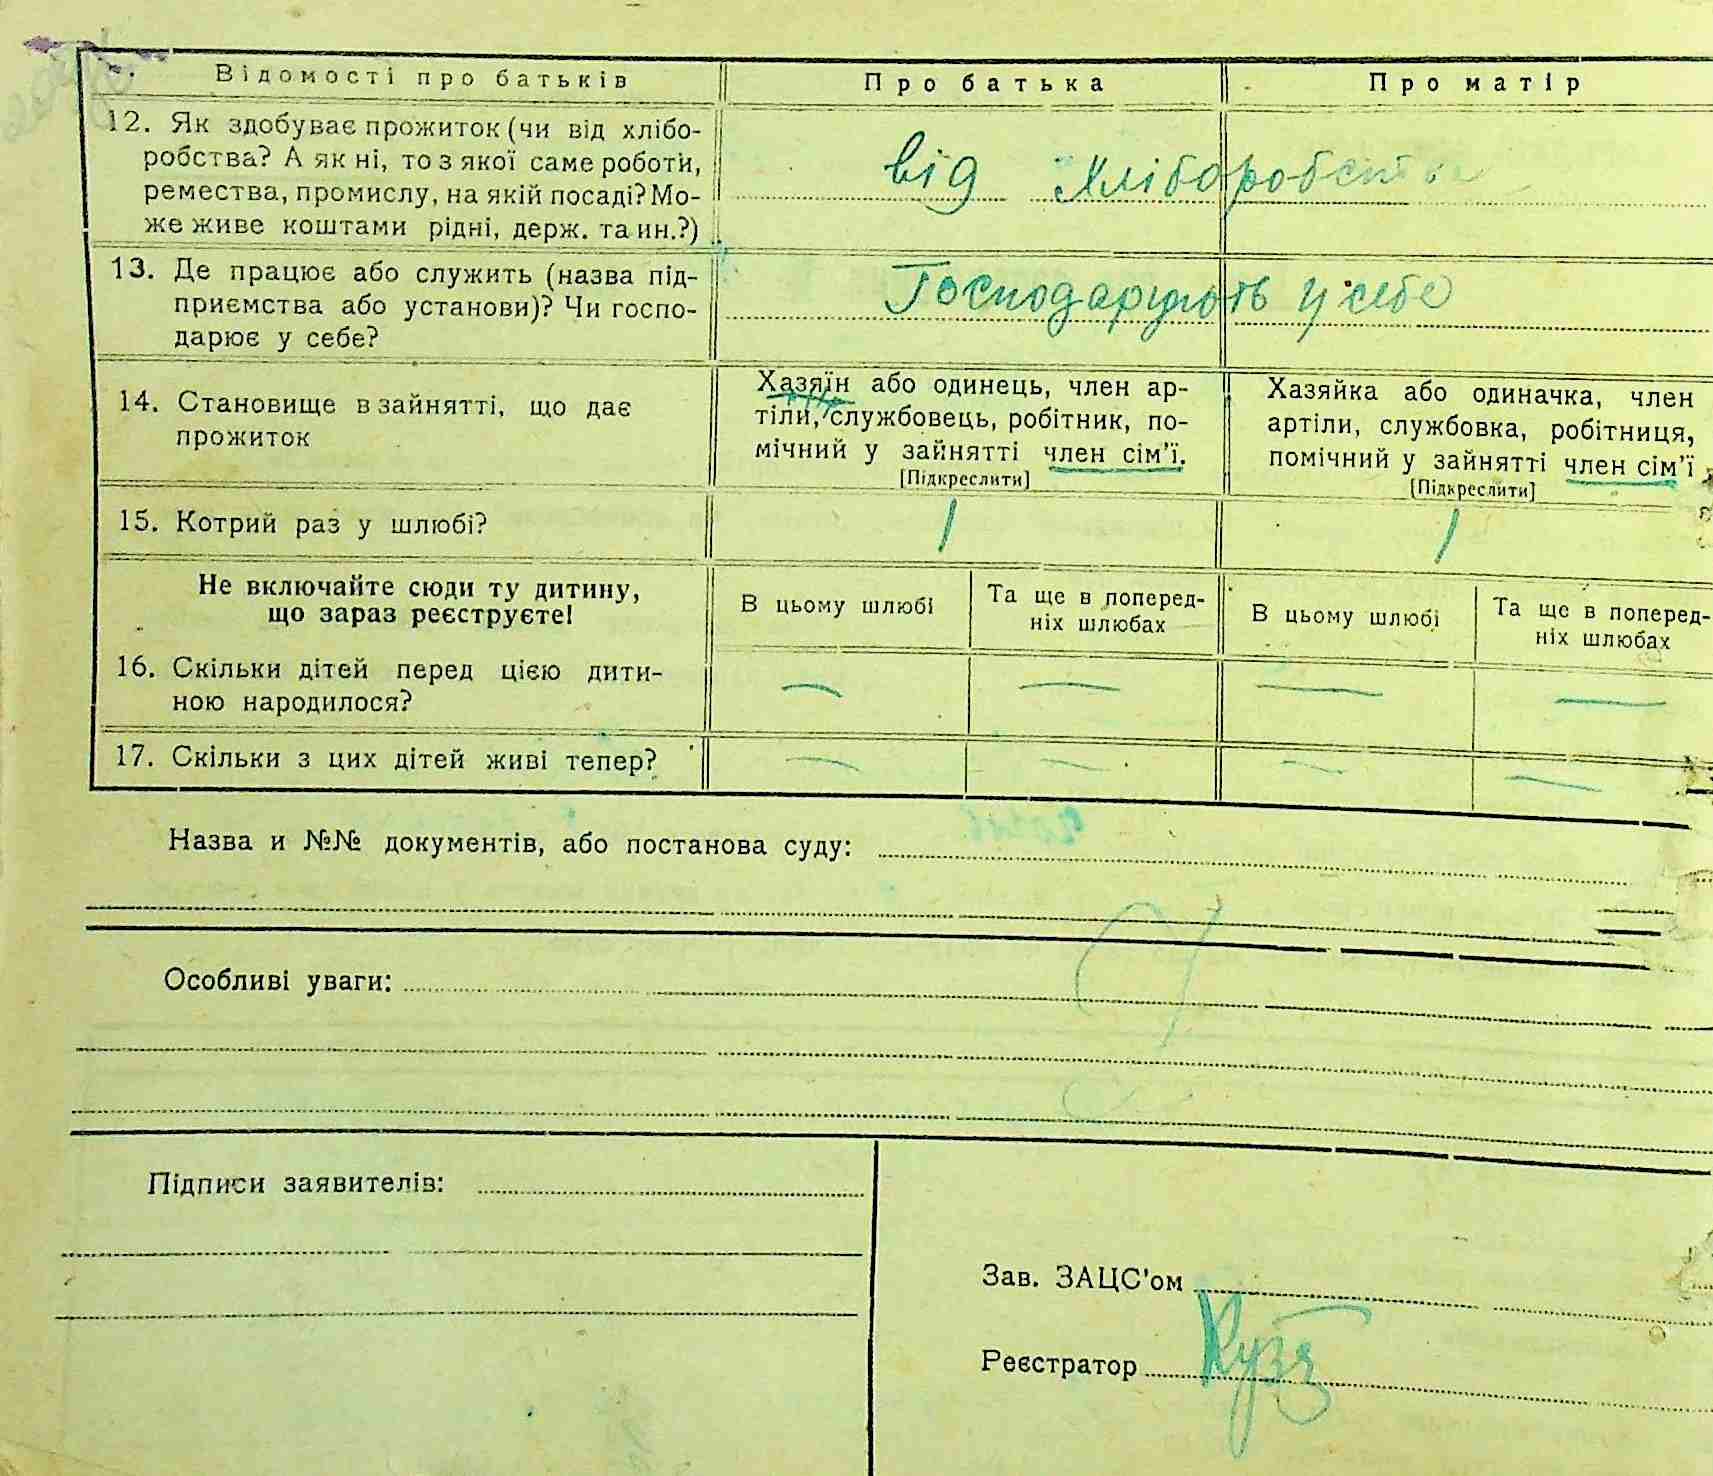 Відомості про батьків Про батька Про матір
12. Як здобуває прожиток (чи від хлібо-
робства? А як ні, то з якої саме роботи,
ремества, промислу, на якій посаді? Мо-
же живе коштами рідні, держ. та ин.?)
від хліборобства
13. Де працює або служить (назва під-
приємства або установи)? Чи госпо-
дарює у себе?
Господарують у себе
14. Становище в зайнятті, що дає
прожиток
Хазяїн або одинець, член ар-
тіли, службовець, робітник, по-
мічний у зайнятті член сім’ї.
[Підкреслити]
Хазяйка або одиначка, член
артіли, службовка, робітниця,
помічний у зайнятті член сім’ї
[Підкреслити]
15. Котрий раз у шлюбі? 1 1
Не включайте сюди ту дитину,
що зараз реєструєте!
В цьому шлюбі
Та ще в поперед-
ніх шлюбах
В цьому шлюбі
Та ще в поперед-
ніх шлюбах
16. Скільки дітей перед цією дити-
ною народилося?
— — — —
17. Скільки з цих дітей живі тепер? — — — —
Назва и №№ документів, або постанова суду:
Особливі уваги:
Підписи заявителів:
Зав. ЗАЦС’ом
Реєстратор